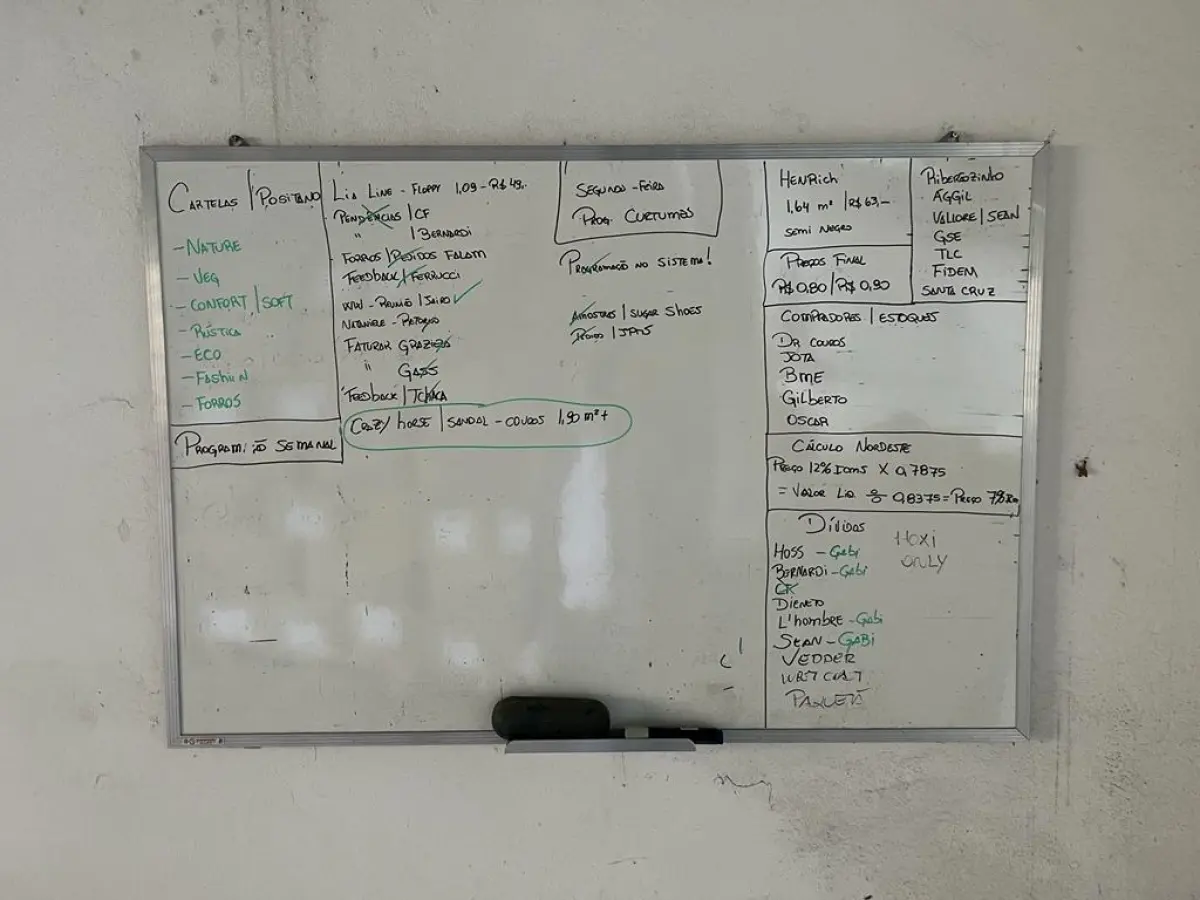 CARTELAS / POSITANO
- NATURE
- VEG
- CONFORT / SOFT
- RÚSTICA
- ECO
- FASHION
- FORROS
PROGRAM. ÃO SEMANAL
LIA LINE - FLOPPY 1,09 - R$ 49,-
PENDÊNCIAS / CF
" / BERNARDI
FORROS / PEDIDOS FALAM
FEEDBACK / FERRUCCI
WW - REUNIÃO / JAIRO ✓
NATANIELE - RETORNO
FATURAR GRAZIEZA
" GASS
FEEDBACK / TCHACA
CRAZY HORSE / SANDAL - COUROS 1,90 m² +
SEGUNDA-FEIRA
PROG. CURTUMES
PROGRAMAÇÃO NO SISTEMA!
AMOSTRAS / SUGAR SHOES
PEDIDO / JPMS
HENRICH
1,64 m² / R$ 63,-
SEMI NEGRO
PREÇOS FINAL
R$ 0,80 / R$ 0,90
RIBEROZINHO
AGGIL
VALLORE / SEAN
GSE
TLC
FIDEM
SANTA CRUZ
COMPRADORES / ESTOQUES
DR COUROS
JOTA
BME
GILBERTO
OSCAR
CÁLCULO NORDESTE
PREÇO 12% ICMS X 0,7875
= VALOR LIQ ÷ 0,8375 = PREÇO 7%
DÍVIDAS
HOSS - GABI
BERNARDI - GABI
CK
DIENETO
L'HOMBRE - GABI
SEAN - GABI
VEDDER
WERT
PAQUETÁ
HOXI
ONLY